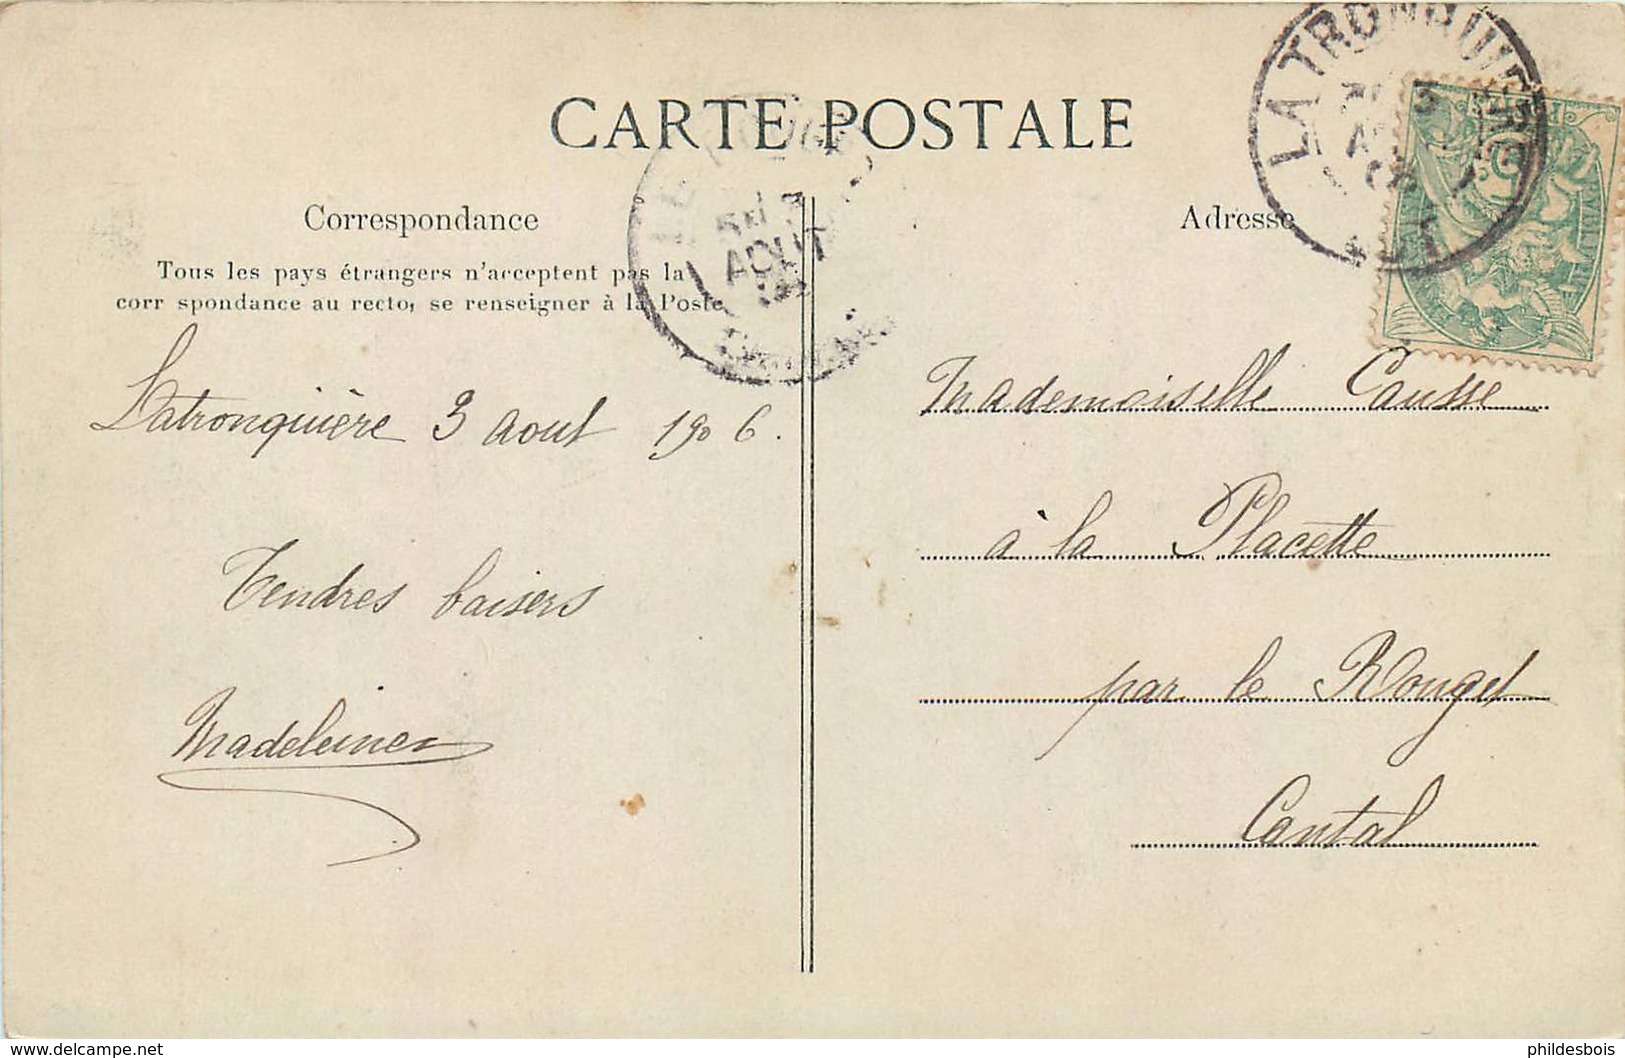 CARTE POSTALE
Correspondance
Tous les pays étrangers n'acceptent pas la
corr spondance au recto, se renseigner à la Poste
Latronquière 3 aout 1906.
Tendres baisers
Madeleine
Adresse
LATRONQUIÈRE
LOT
AOUT
Mademoiselle Causse
à la Placette
par le Rouget
Cantal
www.delcampe.net
phildesbois